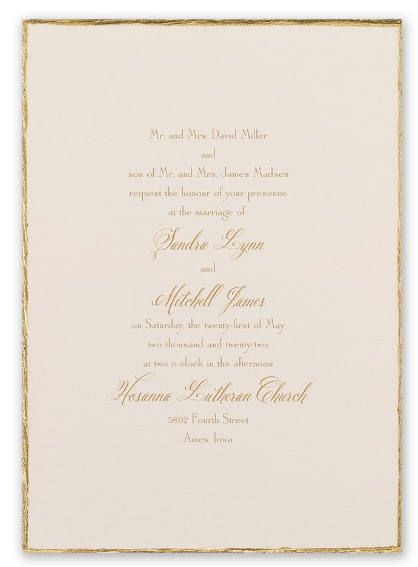 Mr. and Mrs. David Miller
and
son of Mr. and Mrs. James Madsen
request the honour of your presence
at the marriage of
Sandra Lynn
and
Mitchell James
on Saturday, the twenty-first of May
two thousand and twenty-two
at two o'clock in the afternoon
Hosanna Lutheran Church
5892 Fourth Street
Ames, Iowa